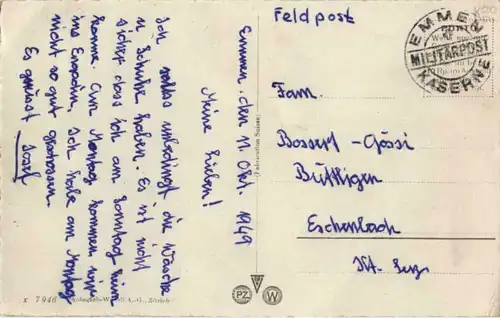 Emmen, den 11. Okt. 1949
Meine Lieben!
Ich sollte unbedingt die Wäsche
u Schuhe haben. Es ist nicht
sicher dass ich am Sonntag heim
komme. Am Montag kommen wir
ins Ich habe am Montag
nicht so gut
Es grüsst Josef
Feldpost
EMMEN
MILITÄRPOST
KASERNE
Fam.
Bossert-Gössi
Büttligen
Eschenbach
Kt. Luz.
x 7946
PZ
W